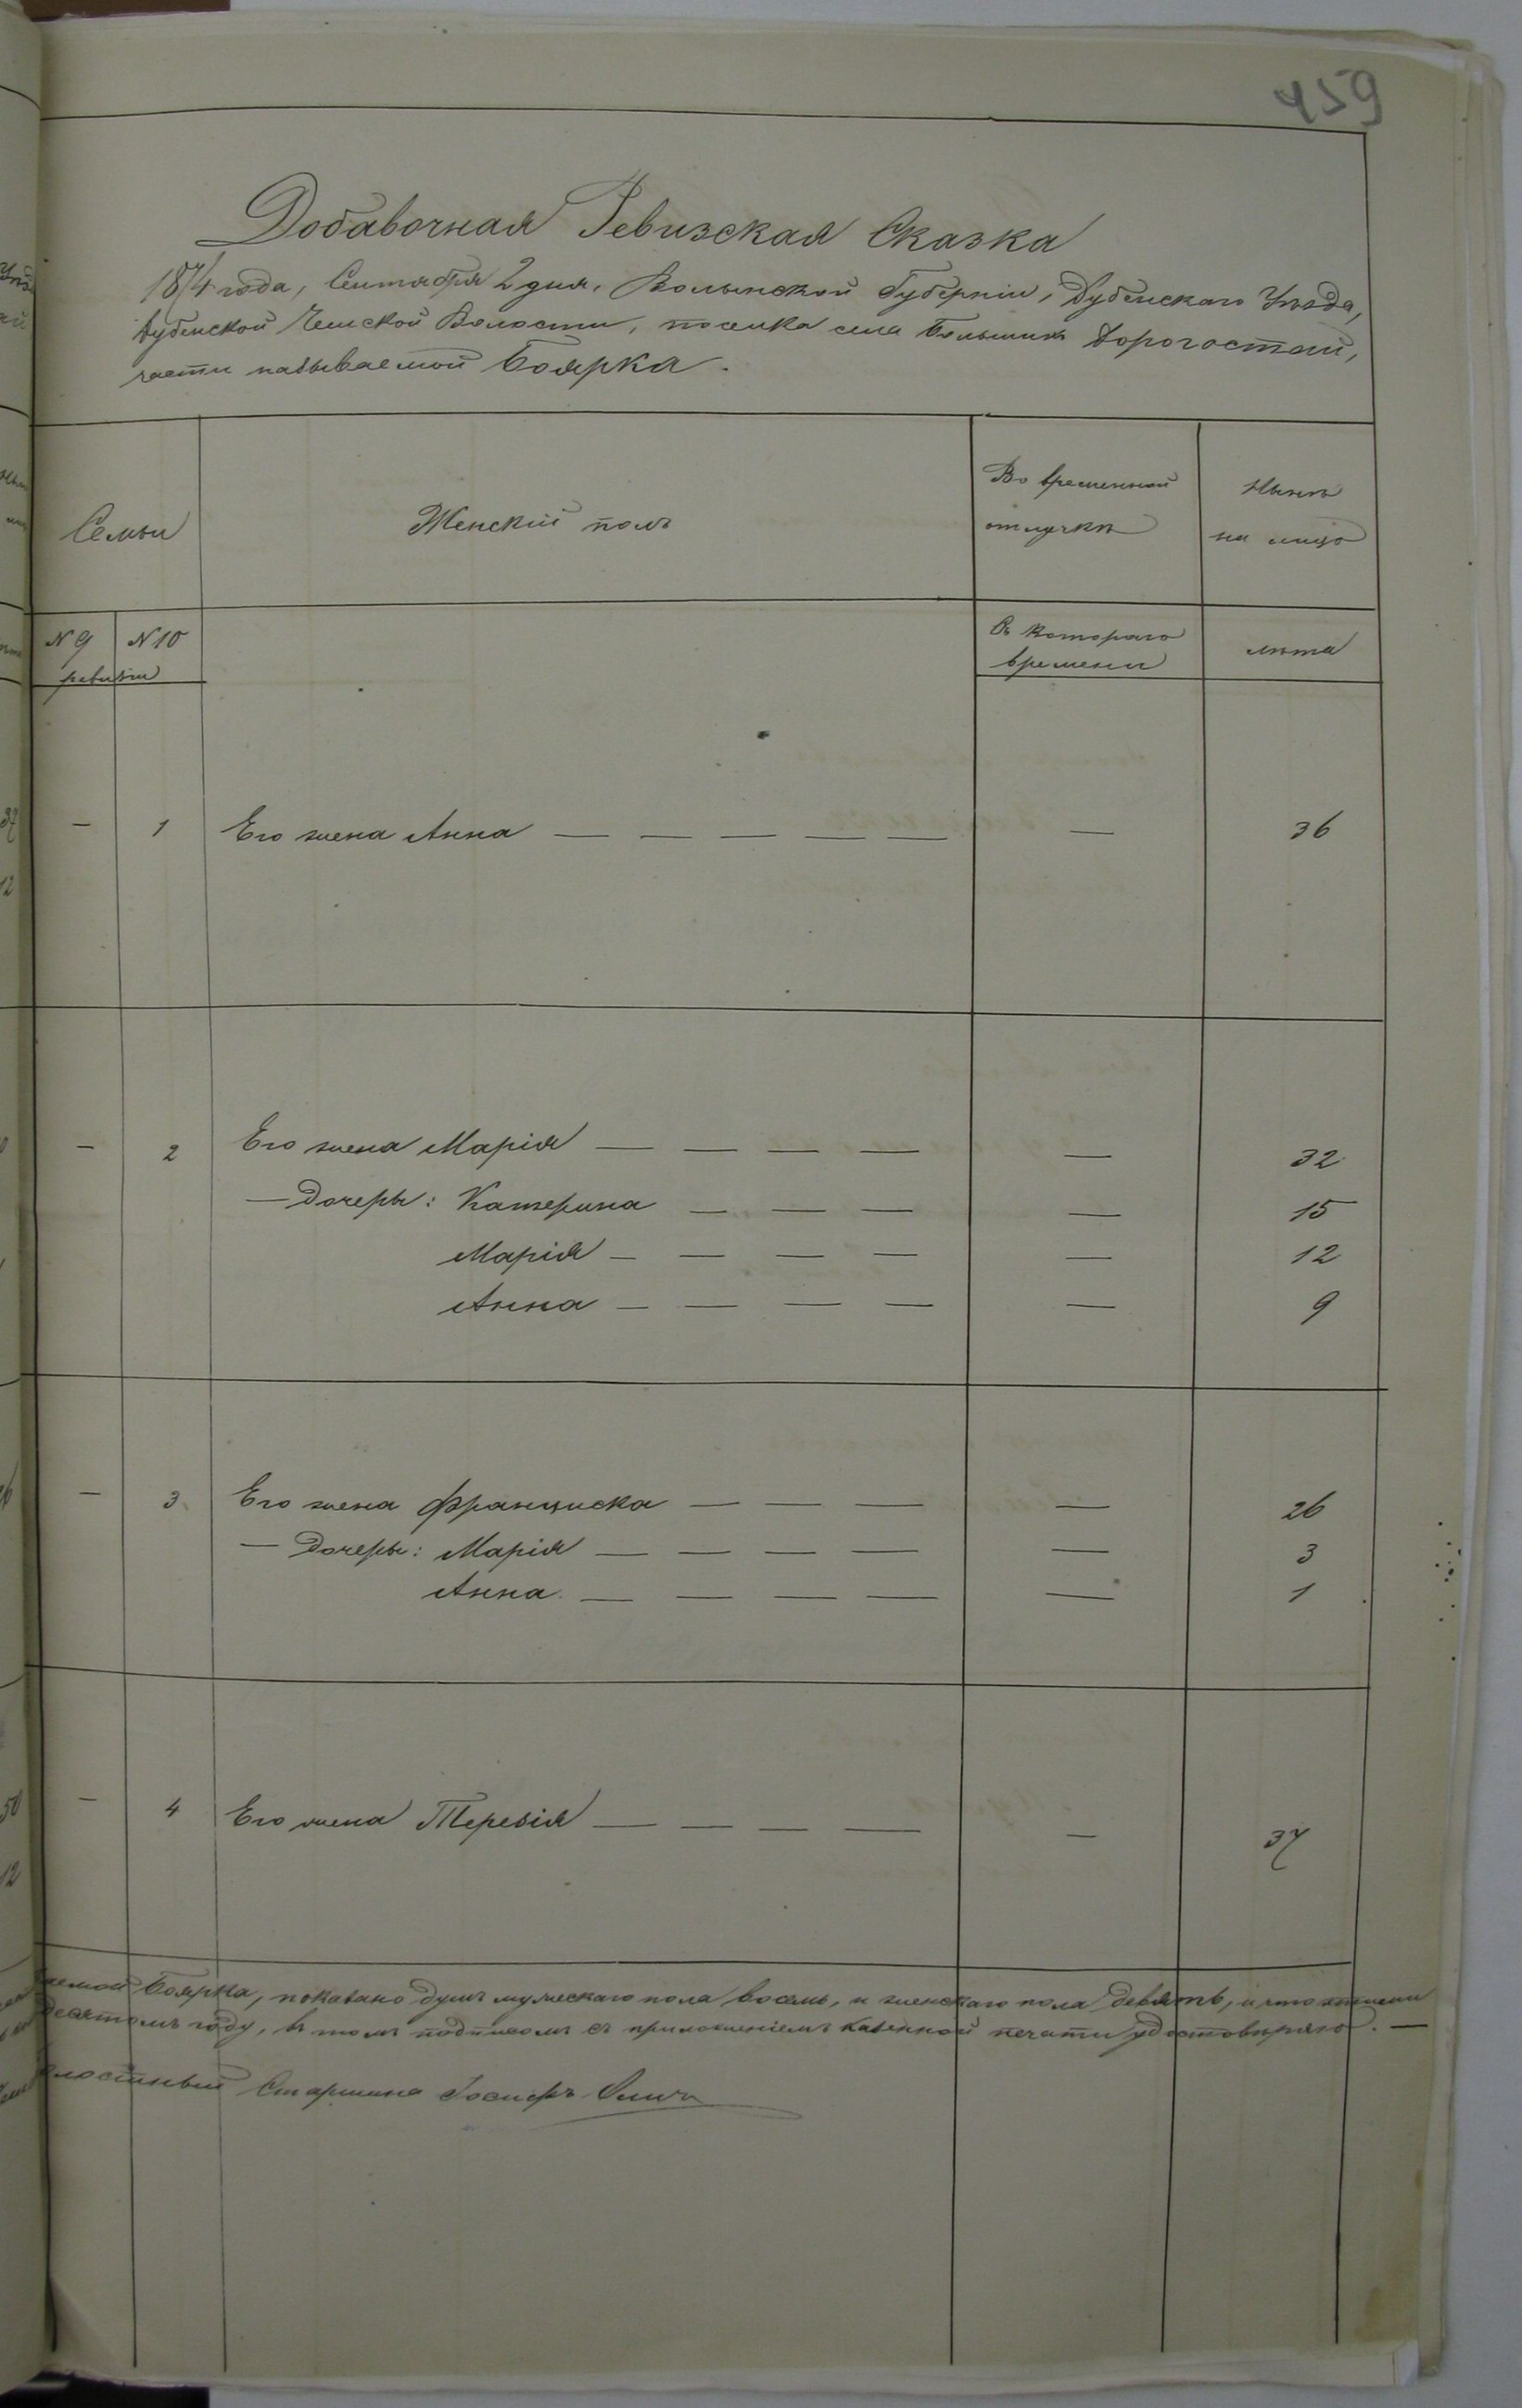 459
Добавочная Ревизская Сказка
1874 года, Сентября 2 дня, Волынской Губернии, Дубенскаго Уѣзда,
Дубенской Чешской Волости, поселка села Большихъ Дорогостай,
части называемой Боярка.
Семьи
Женскій полъ
Во временной
отлучкѣ
Нынѣ
на лицо
N 9 N 10
ревизіи
Съ котораго
времени
лѣта
— 1 Его жена Анна — — — — — — 36
— 2 Его жена Марія — — — — — 32
— Дочеры: Катерина — — — — 15
Марія — — — — — 12
Анна — — — — — 9
— 3 Его жена Франциска — — — — 26
— Дочеры: Марія — — — — — 3
Анна — — — — — 1
— 4 Его жена Терезія — — — — — 37
Боярка, показано душъ мужескаго пола восемь, и женскаго пола девять, и что
году, въ томъ подписомъ съ приложеніемъ казенной печати удостовѣряю. —
Старшина Іосифъ